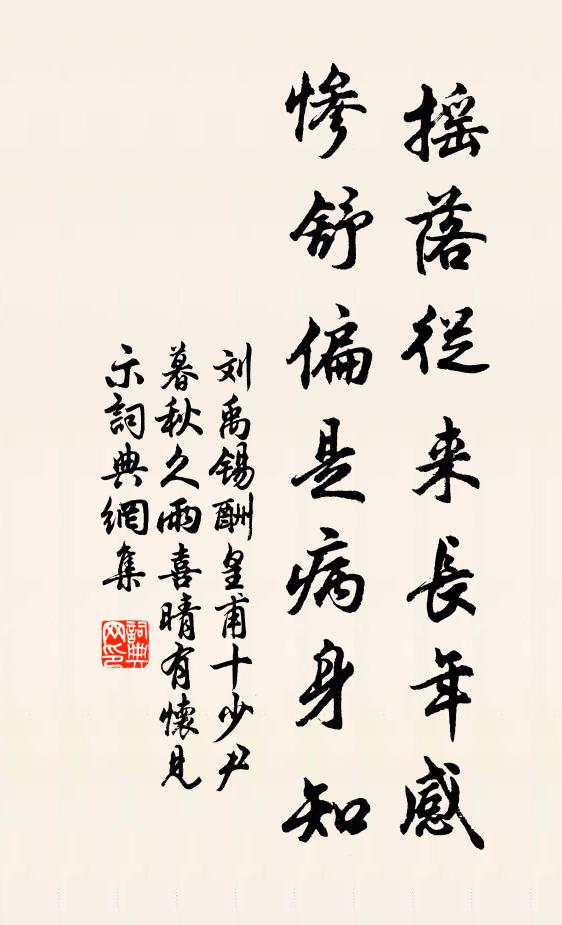 摇落從来長年感
惨舒偏是病身知
刘禹锡酬皇甫十少尹
暮秋久雨喜晴有懷見
示詞典網集
詞典
网印